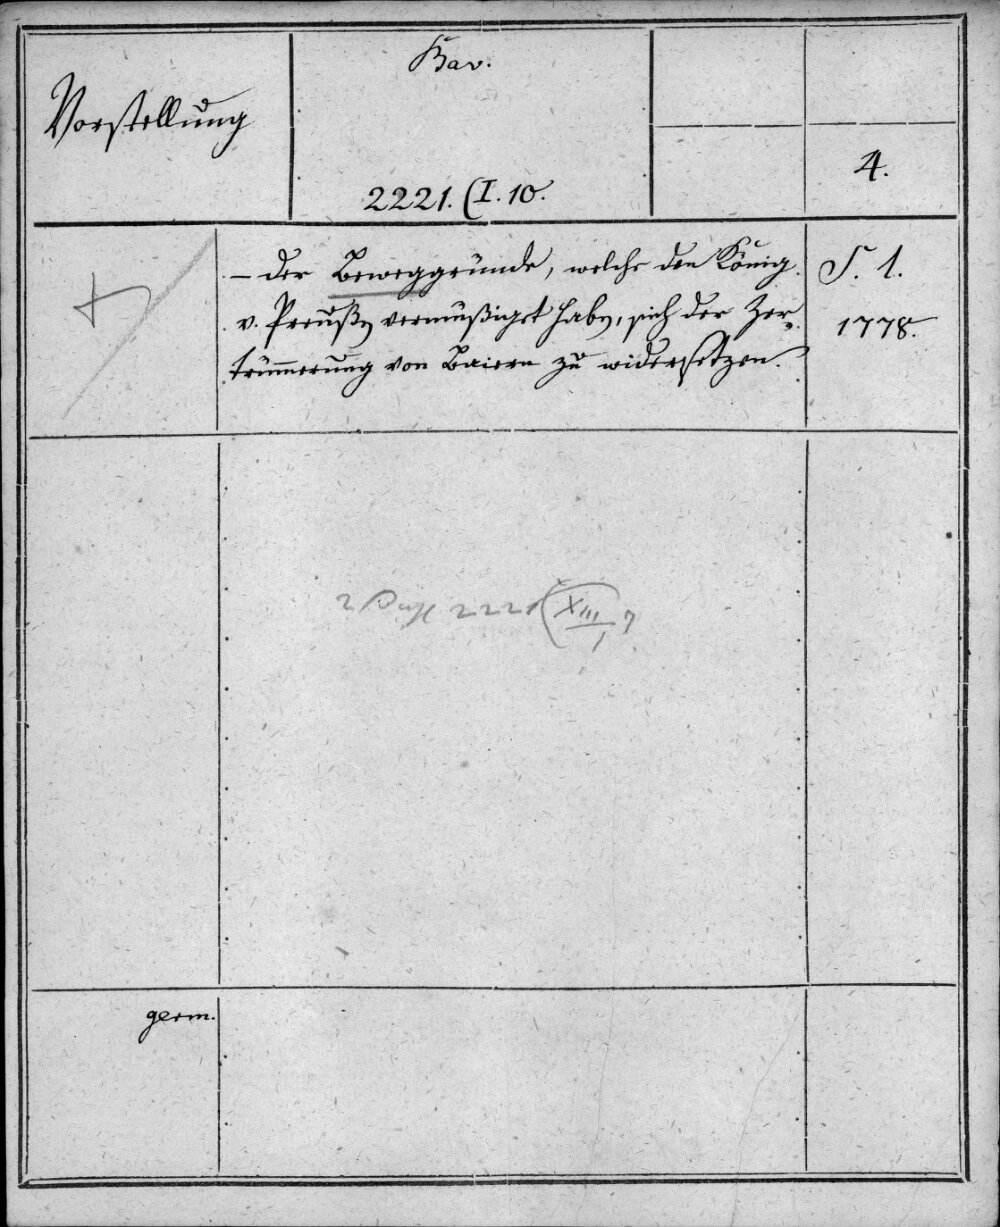 Bav.
Vorstellung
4.
2221. (I. 10.
– der Beweggründe, welche den König
v. Preußen vermüßiget haben, sich der Zer-
trümmerung von Baiern zu widersetzen.
S. l.
1778.
2 2221 (XIII, 7
1
germ.